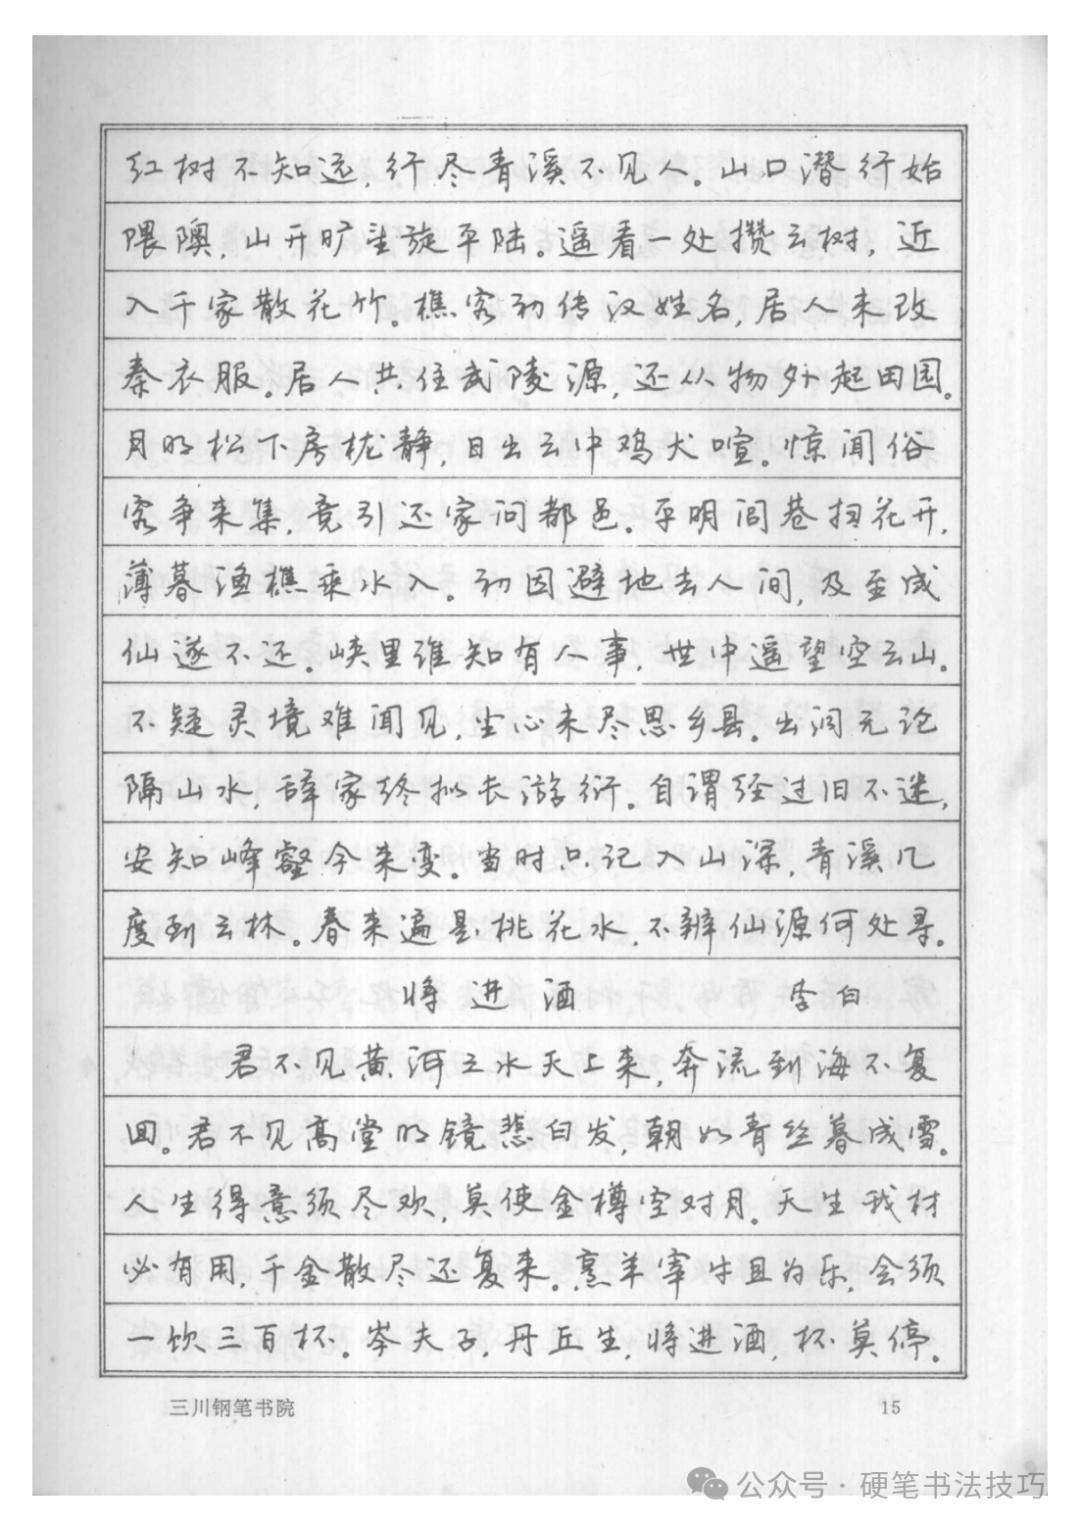 红树不知远,行尽青溪不见人。山口潜行始
隈隩,山开旷望旋平陆。遥看一处攒云树,近
入千家散花竹。樵客初传汉姓名,居人未改
秦衣服。居人共住武陵源,还从物外起田园。
月明松下房栊静,日出云中鸡犬喧。惊闻俗
客争来集,竟引还家问都邑。平明闾巷扫花开,
薄暮渔樵乘水入。初因避地去人间,及至成
仙遂不还。峡里谁知有人事,世中遥望空云山。
不疑灵境难闻见,尘心未尽思乡县。出洞无论
隔山水,辞家终拟长游衍。自谓经过旧不迷,
安知峰壑今来变。当时只记入山深,青溪几
度到云林。春来遍是桃花水,不辨仙源何处寻。
将进酒 李白
君不见黄河之水天上来,奔流到海不复
回。君不见高堂明镜悲白发,朝如青丝暮成雪。
人生得意须尽欢,莫使金樽空对月。天生我材
必有用,千金散尽还复来。烹羊宰牛且为乐,会须
一饮三百杯。岑夫子,丹丘生,将进酒,杯莫停。
三川钢笔书院 15
公众号·硬笔书法技巧